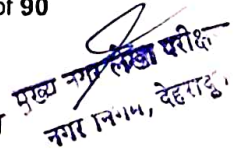 of 90
मुख्य नगर लेखा परीक्षक
नगर निगम, देहरादून